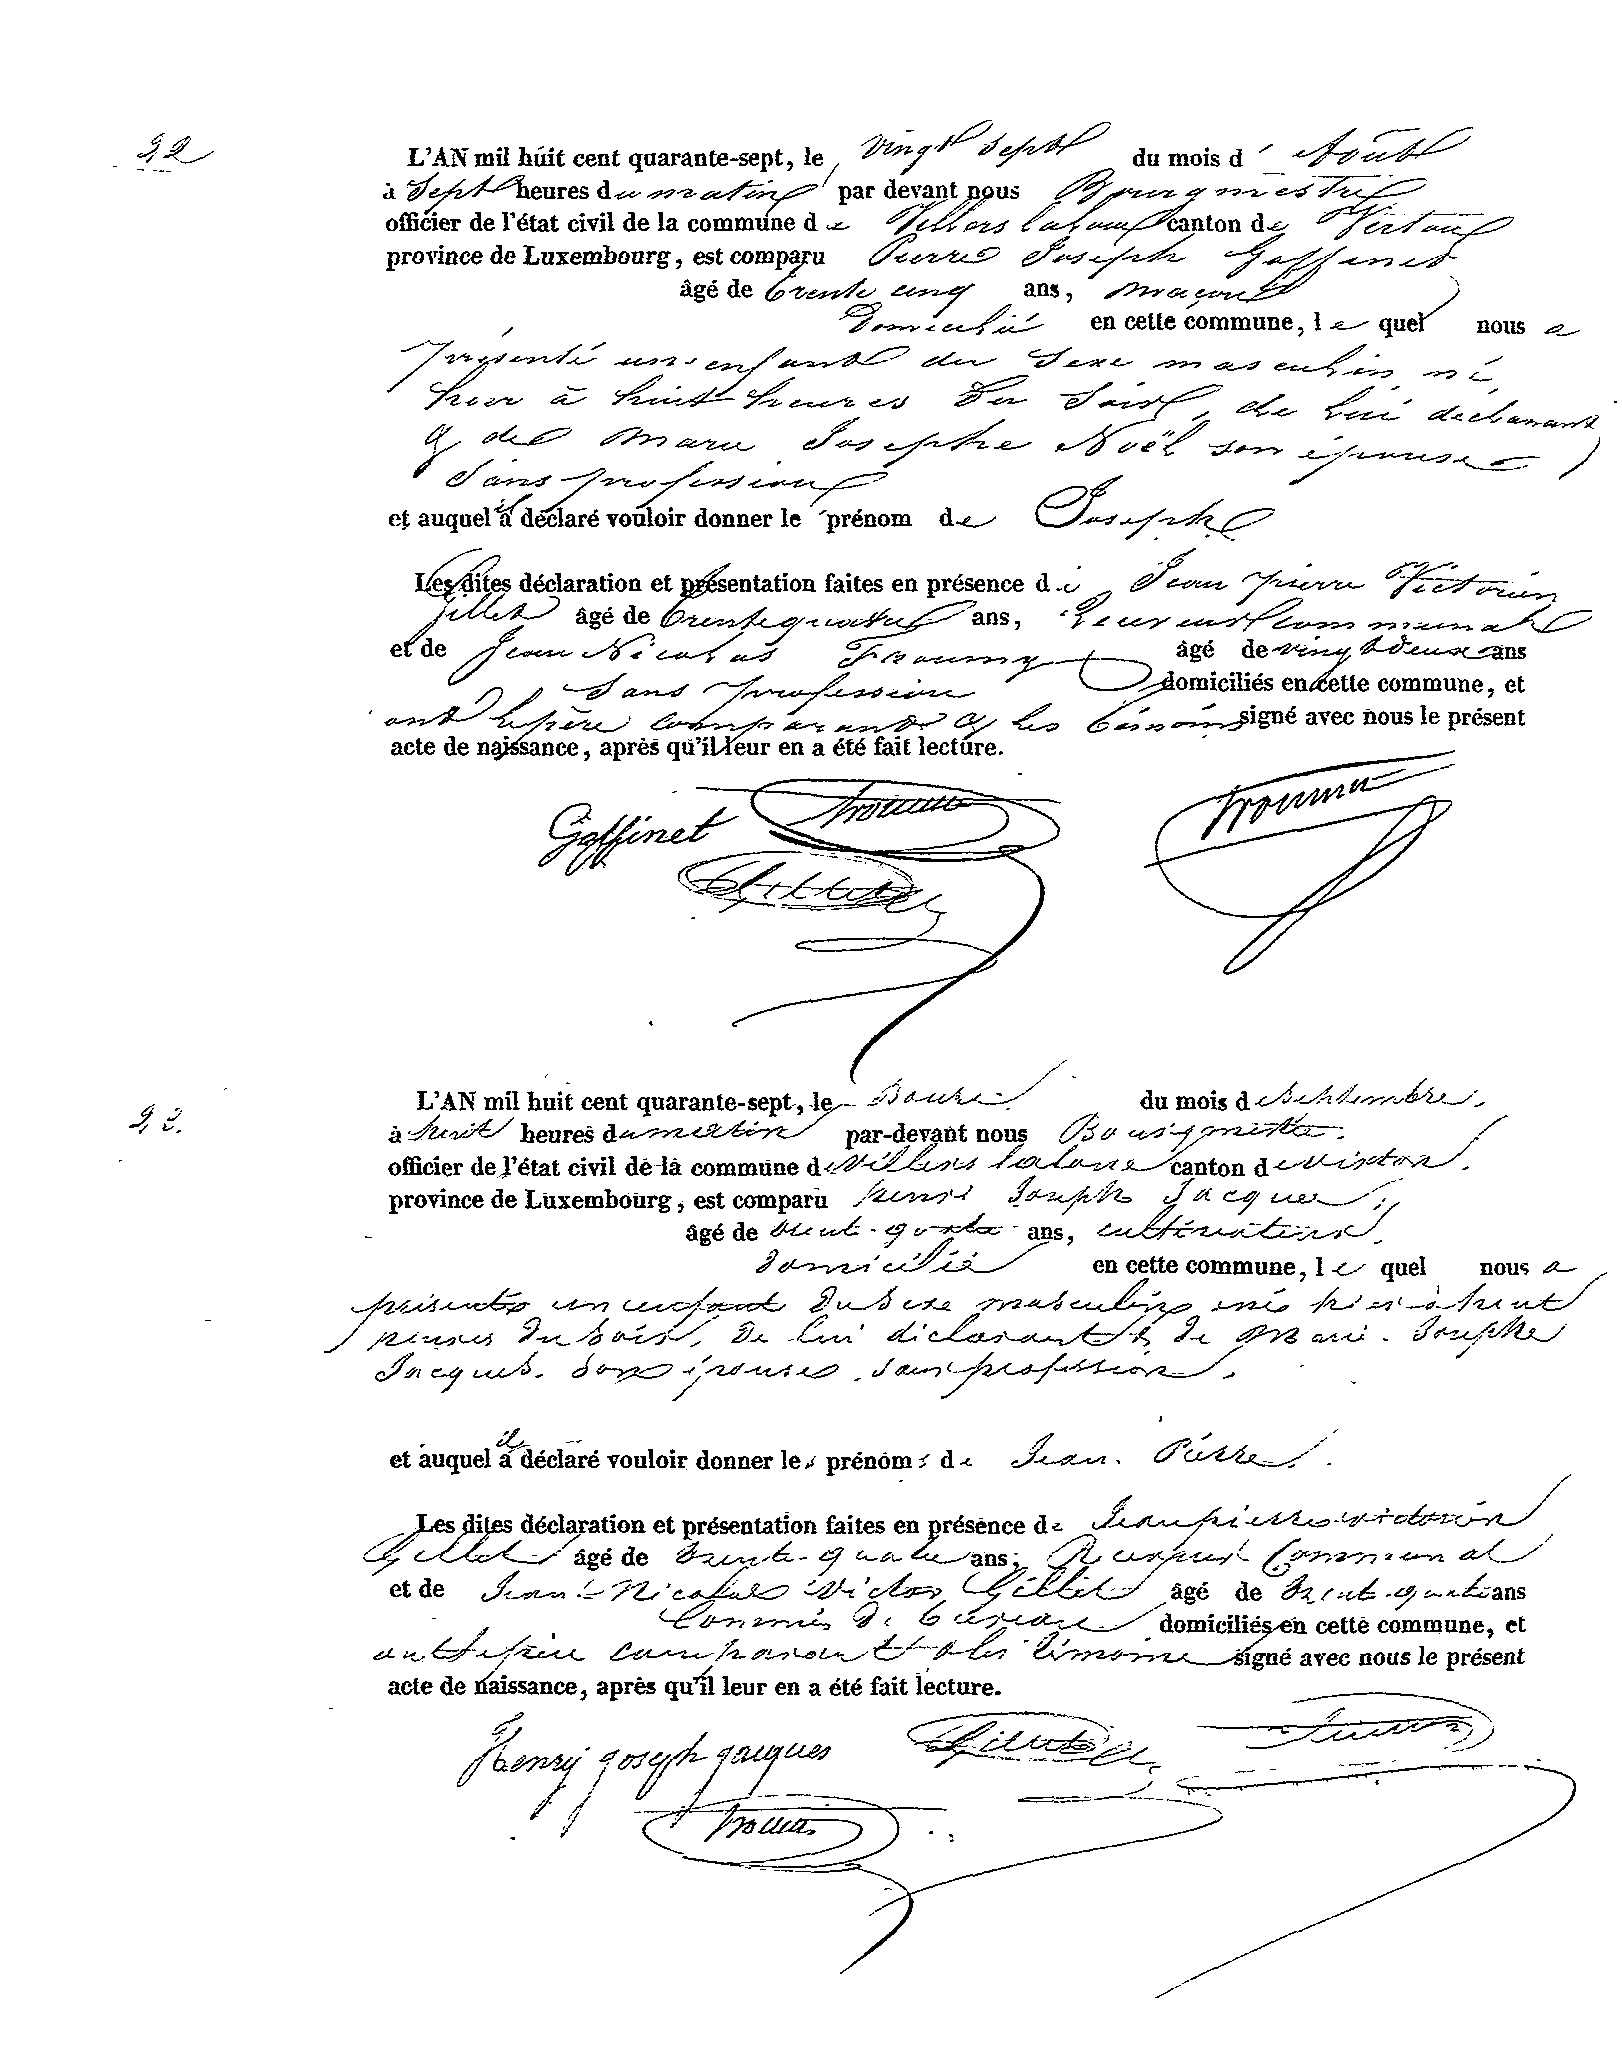 22
L'AN mil huit cent quarante-sept, le vingt sept du mois d'Août
à sept heures du matin par devant nous Bourgmestre
officier de l'état civil de la commune de Villers laloue canton de Virton
province de Luxembourg, est comparu Pierre Joseph Goffinet
âgé de trente cinq ans, maçon
Domicilié en cette commune, le quel nous a
présenté un enfant du sexe masculin, né
hier à huit heures du soir, de lui déclarant
& de Marie Josephe Noël son épouse
sans profession
et auquel il a déclaré vouloir donner le prénom de Joseph
Les dites déclaration et présentation faites en présence de Jean pierre Victorien
Gillet âgé de trente quatre ans, Receveur communal
et de Jean Nicolas âgé de vingt deux ans
sans profession domiciliés en cette commune, et
ont le père comparant & les témoins signé avec nous le présent
acte de naissance, après qu'il leur en a été fait lecture.
Goffinet
Gillet
23.
L'AN mil huit cent quarante-sept, le Douze du mois de Septembre.
à huit heures du matin par-devant nous Bourgmestre.
officier de l'état civil de la commune de Villers laloue canton de Virton.
province de Luxembourg, est comparu henri Joseph Jacques
âgé de trent-quatre ans, cultivateur.
Domicilié en cette commune, le quel nous a
présenté un enfant Du Sexe masculin né hier à huit
heures Du Soir, De lui déclarant & De Marie-Josephe
Jacques. Son épouse. Sans profession.
et auquel il a déclaré vouloir donner les prénoms de Jean. Pierre.
Les dites déclaration et présentation faites en présence de Jean pierre victorien
Gillet âgé de trente-quatre ans, Receveur Communal
et de Jean-Nicolas Victor Gillet âgé de trent-quatre ans
Commis De bureau domiciliés en cette commune, et
ont le père comparant & les témoins signé avec nous le présent
acte de naissance, après qu'il leur en a été fait lecture.
Henry joseph jacques Gillet